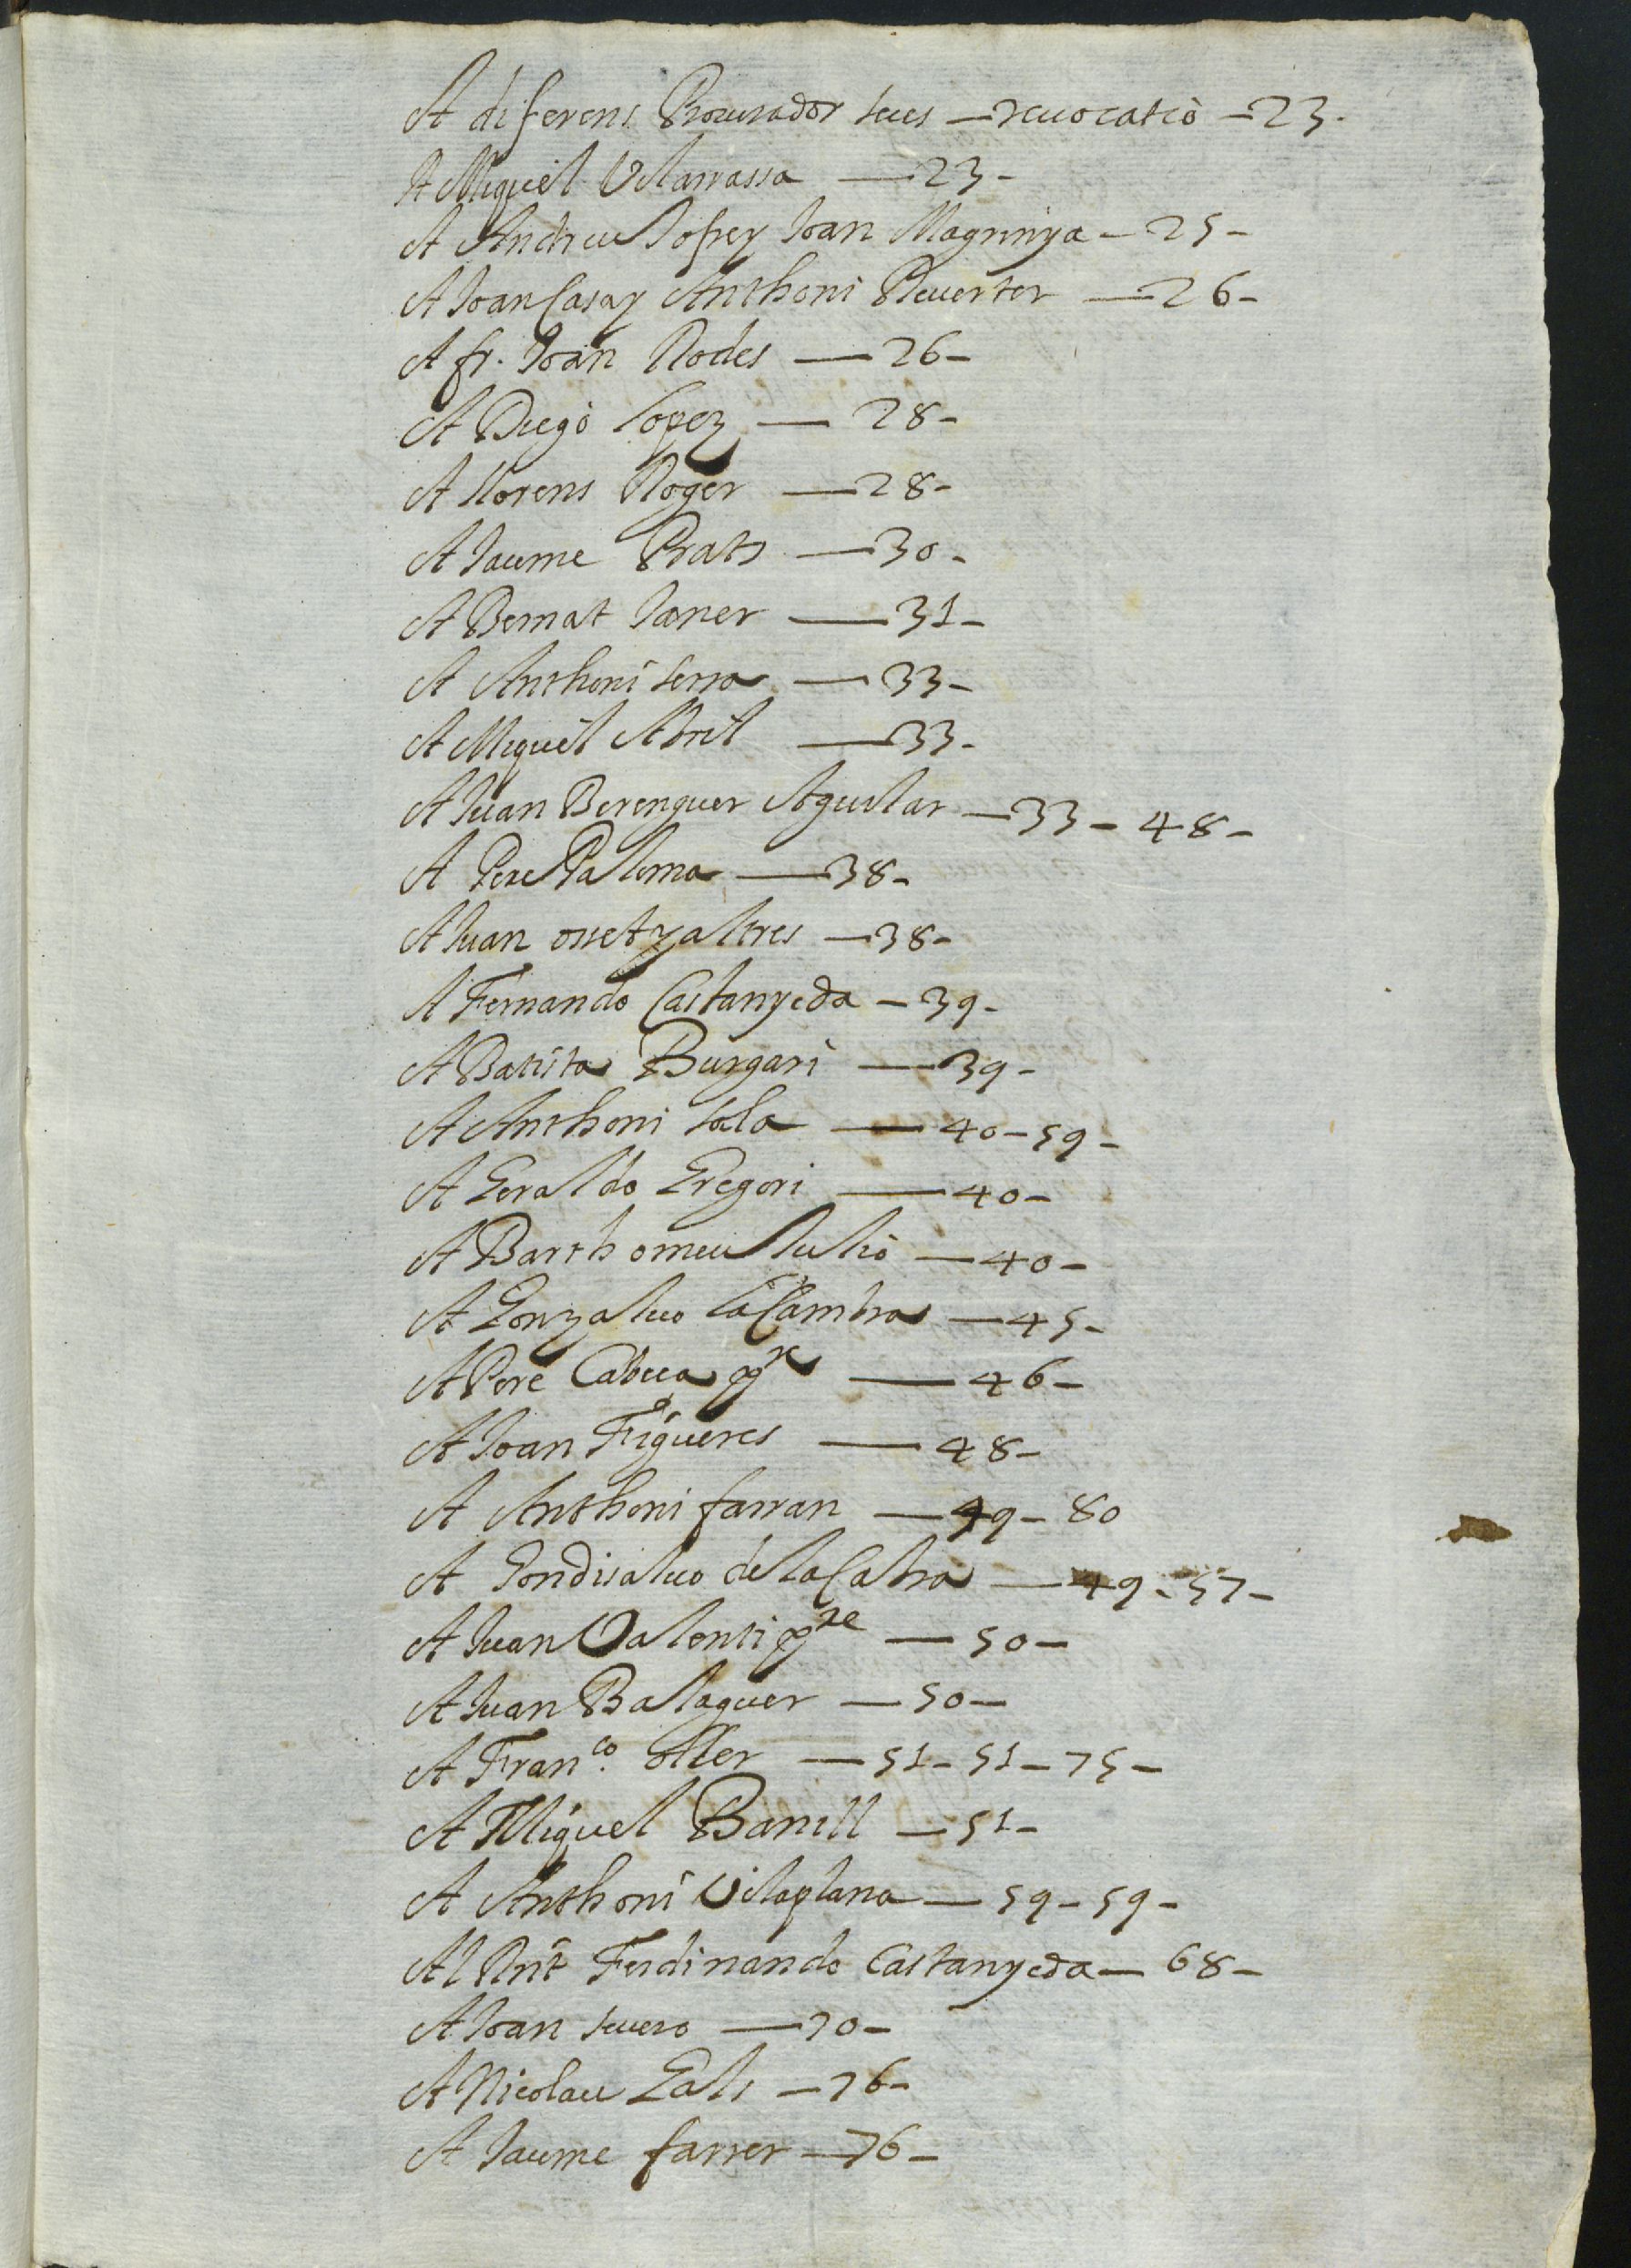 A diferens Procurador seus — reuocatio — 23.
A Miquel Vilarrassa — 23 —
A Andreu Jofre y Joan Magrinya — 25 —
A Joan Casas y Anthoni Reuerter — 26 —
A fr. Joan Rodes — 26 —
A Diego Lopez — 28 —
A llorens Roger — 28 —
A Jaume Prats — 30 —
A Bernat Janer — 31 —
A Anthoni serra — 33 —
A Miquel Abril — 33 —
A Juan Berenguer Aguilar — 33 — 48 —
A Pere Paloma — 38 —
A Juan osset y altres — 38 —
A Fernando Castanyeda — 39 —
A Batista Burgari — 39 —
A Anthoni sala — 40 — 59 —
A Geraldo Gregori — 40 —
A Barthomeu Julio — 40 —
A Gonzaluo la Cambra — 45 —
A Pere Cabeça pre — 46 —
A Joan Figueres — 48 —
A Anthoni farran — 49 — 80
A Gondisaluo de la Cabra — 49 — 57 —
A Juan Valenti pre — 50 —
A Juan Balaguer — 50 —
A Franco. oller — 51 — 51 — 75 —
A Miquel Barill — 51 —
A Anthoni Vilaplana — 59 — 59 —
Al Rnt Ferdinando Castanyeda — 68 —
A Joan seuero — 70 —
A Nicolau Gali — 76 —
A Jaume farrer — 76 —